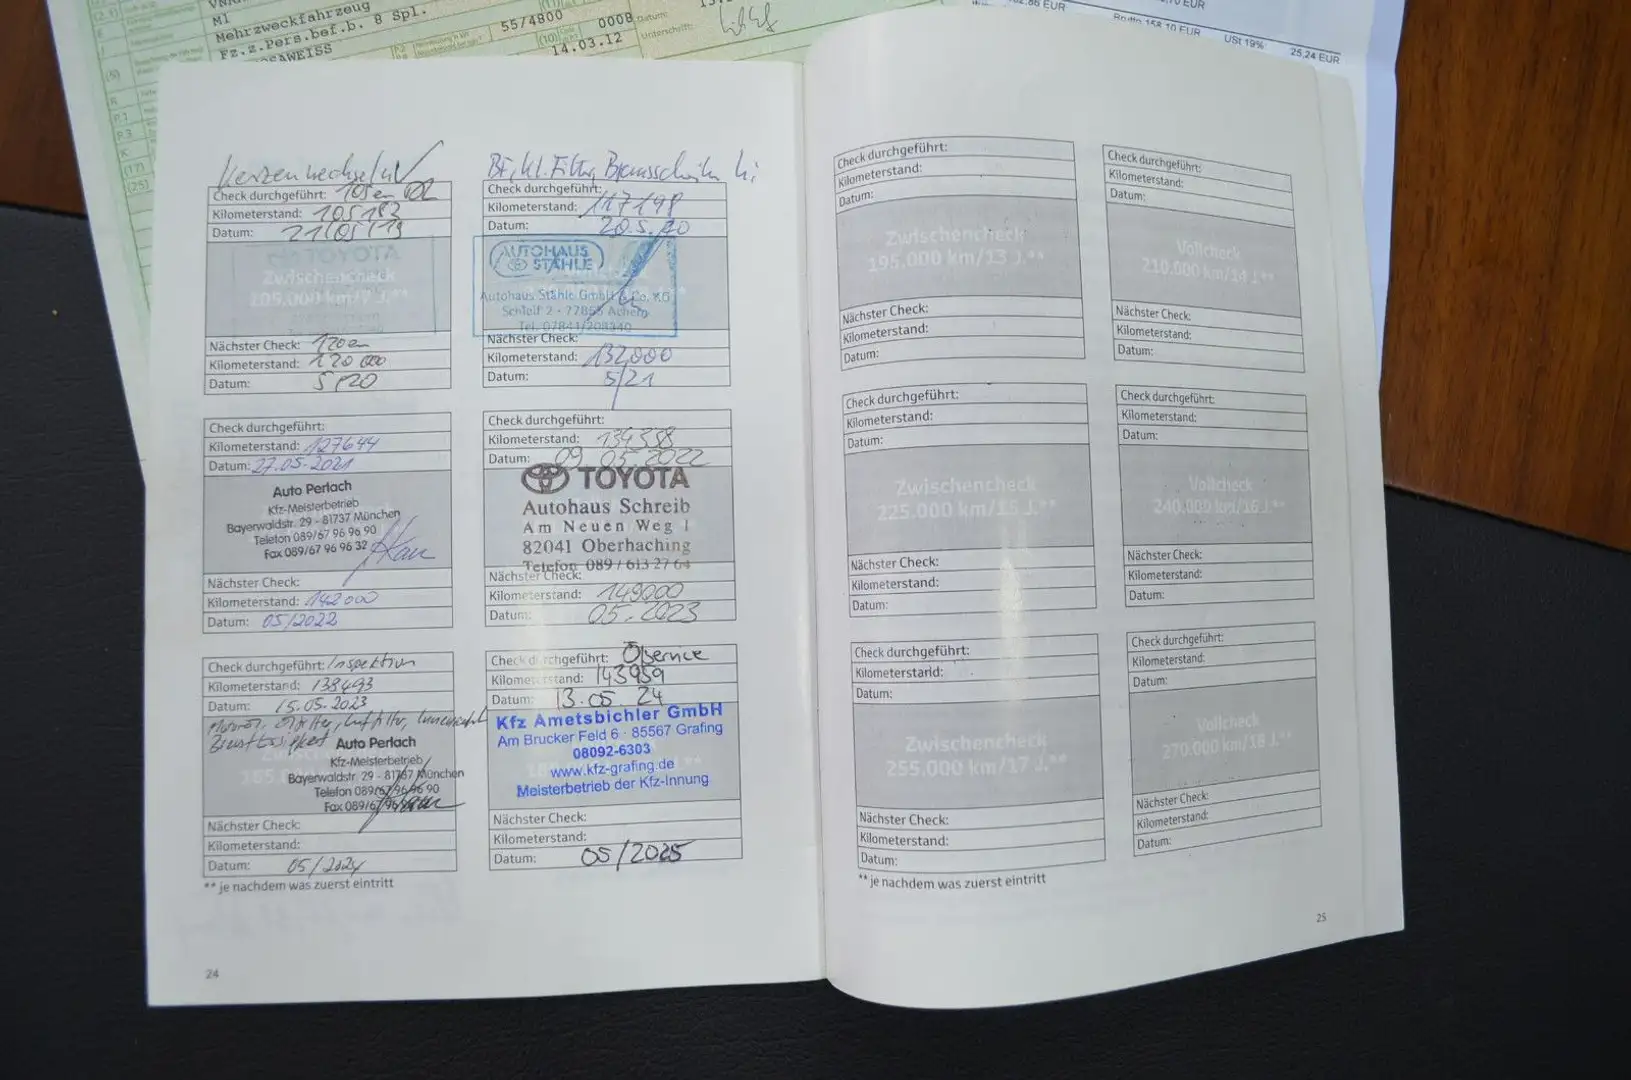 MI
Mehrzweckfahrzeug
Fz.z.Pers.bef.b. 8 Spl.
55/4800
0008
14.03.12
Datum:
Unterschrift:
EUR
Brutto 158,10 EUR
USt 19%
25,24 EUR
Kerzenwechsel
Check durchgeführt: 105en
Kilometerstand: 105183
Datum: 21/05/19
TOYOTA
Zwischencheck
105.000 km/7 J.**
Nächster Check: 120en
Kilometerstand: 120 000
Datum: 5/20
Check durchgeführt:
Kilometerstand: 117198
Datum: 20.5.20
AUTOHAUS
STÄHLE
Autohaus Stähle GmbH & Co. KG
Schleif 2 - 77855 Achern
Tel. 07841/208340
Nächster Check:
Kilometerstand: 132000
Datum: 5/21
Check durchgeführt:
Kilometerstand: 127644
Datum: 27.05.2021
Auto Perlach
Kfz-Meisterbetrieb
Bayerwaldstr. 29 - 81737 München
Telefon 089/67 96 96 90
Fax 089/67 96 96 32
Nächster Check:
Kilometerstand: 142000
Datum: 05/2022
Check durchgeführt:
Kilometerstand: 134358
Datum: 09.05.2022
TOYOTA
Autohaus Schreib
Am Neuen Weg 1
82041 Oberhaching
Telefon 089 / 613 27 64
Nächster Check:
Kilometerstand: 149000
Datum: 05.2023
Check durchgeführt: Inspektion
Kilometerstand: 138493
Datum: 15.05.2023
Ölfilter, Luftfilter,
Bremsflüssigkeit
Auto Perlach
Kfz-Meisterbetrieb
Bayerwaldstr. 29 - 81737 München
Telefon 089/67 96 96 90
Fax 089/67
Nächster Check:
Kilometerstand:
Datum: 05/2024
Check durchgeführt: Ölservice
Kilometerstand: 143959
Datum: 13.05.24
Kfz Ametsbichler GmbH
Am Brucker Feld 6 · 85567 Grafing
08092-6303
www.kfz-grafing.de
Meisterbetrieb der Kfz-Innung
Nächster Check:
Kilometerstand:
Datum: 05/2025
** je nachdem was zuerst eintritt
24
Check durchgeführt:
Kilometerstand:
Datum:
Zwischencheck
195.000 km/13 J.**
Nächster Check:
Kilometerstand:
Datum:
Check durchgeführt:
Kilometerstand:
Datum:
Vollcheck
210.000 km/14 J.**
Nächster Check:
Kilometerstand:
Datum:
Check durchgeführt:
Kilometerstand:
Datum:
Zwischencheck
225.000 km/15 J.**
Nächster Check:
Kilometerstand:
Datum:
Check durchgeführt:
Kilometerstand:
Datum:
Vollcheck
240.000 km/16 J.**
Nächster Check:
Kilometerstand:
Datum:
Check durchgeführt:
Kilometerstand:
Datum:
Zwischencheck
255.000 km/17 J.**
Nächster Check:
Kilometerstand:
Datum:
Check durchgeführt:
Kilometerstand:
Datum:
Vollcheck
270.000 km/18 J.**
Nächster Check:
Kilometerstand:
Datum:
** je nachdem was zuerst eintritt
25